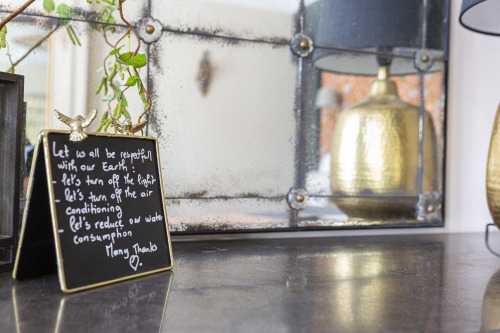 Let us all be respectful
with our Earth :
let's turn off the light
let's turn off the air
conditioning
let's reduce our water
consumption
Many Thanks
♡.